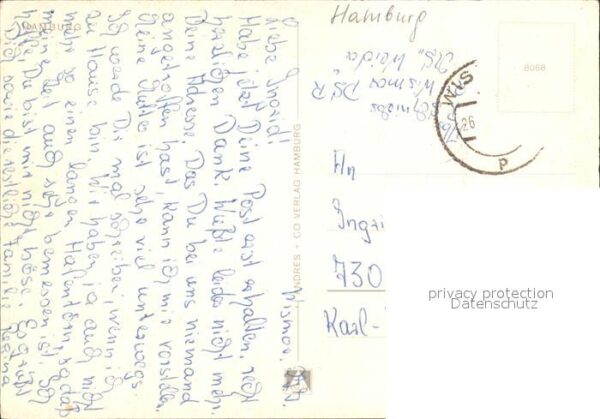 Hamburg
HAMBURG
8068
Wismar,
Liebe Ingrid!
Habe jetzt Deine Post erst erhalten, recht
herzlichen Dank. Wußte leider nicht mehr
Deine Adresse. Das Du bei uns niemand
angetroffen hast, kann ich mir vorstellen.
Meine Mutter ist sehr viel unterwegs
Ich werde Dir mal schreiben, wenn ich
zu Hause bin. Wir haben ja auch nicht
mehr so einen langen Hafentörn, sodaß
meine Zeit auch sehr bemessen ist. Ich
hoffe Du bist mir nicht böse. Es grüßt
Dich sowie die restliche Familie Regina
ANDRES + CO VERLAG HAMBURG
Wismar DSR
"Weida"
WIS
26
An
730
Karl-
privacy protection
Datenschutz